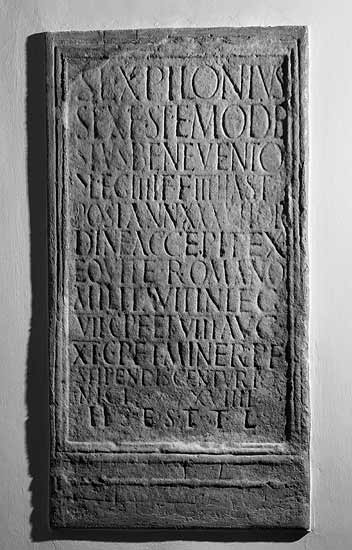 SEX PILONIVS
SEX F STE MODE
STVS BENEVENTO
LEG IIII F F III HAST
POST ANN XXXVII OR
DIN ACCEPIT EX
EQVITE ROMANO
MILITAVIT IN LEG
VII C P F ET VIII AVG
XI C P F ET I MINER P F
STIPENDIS CENTVRIO
NICIS XVIIII
H S E S T T L